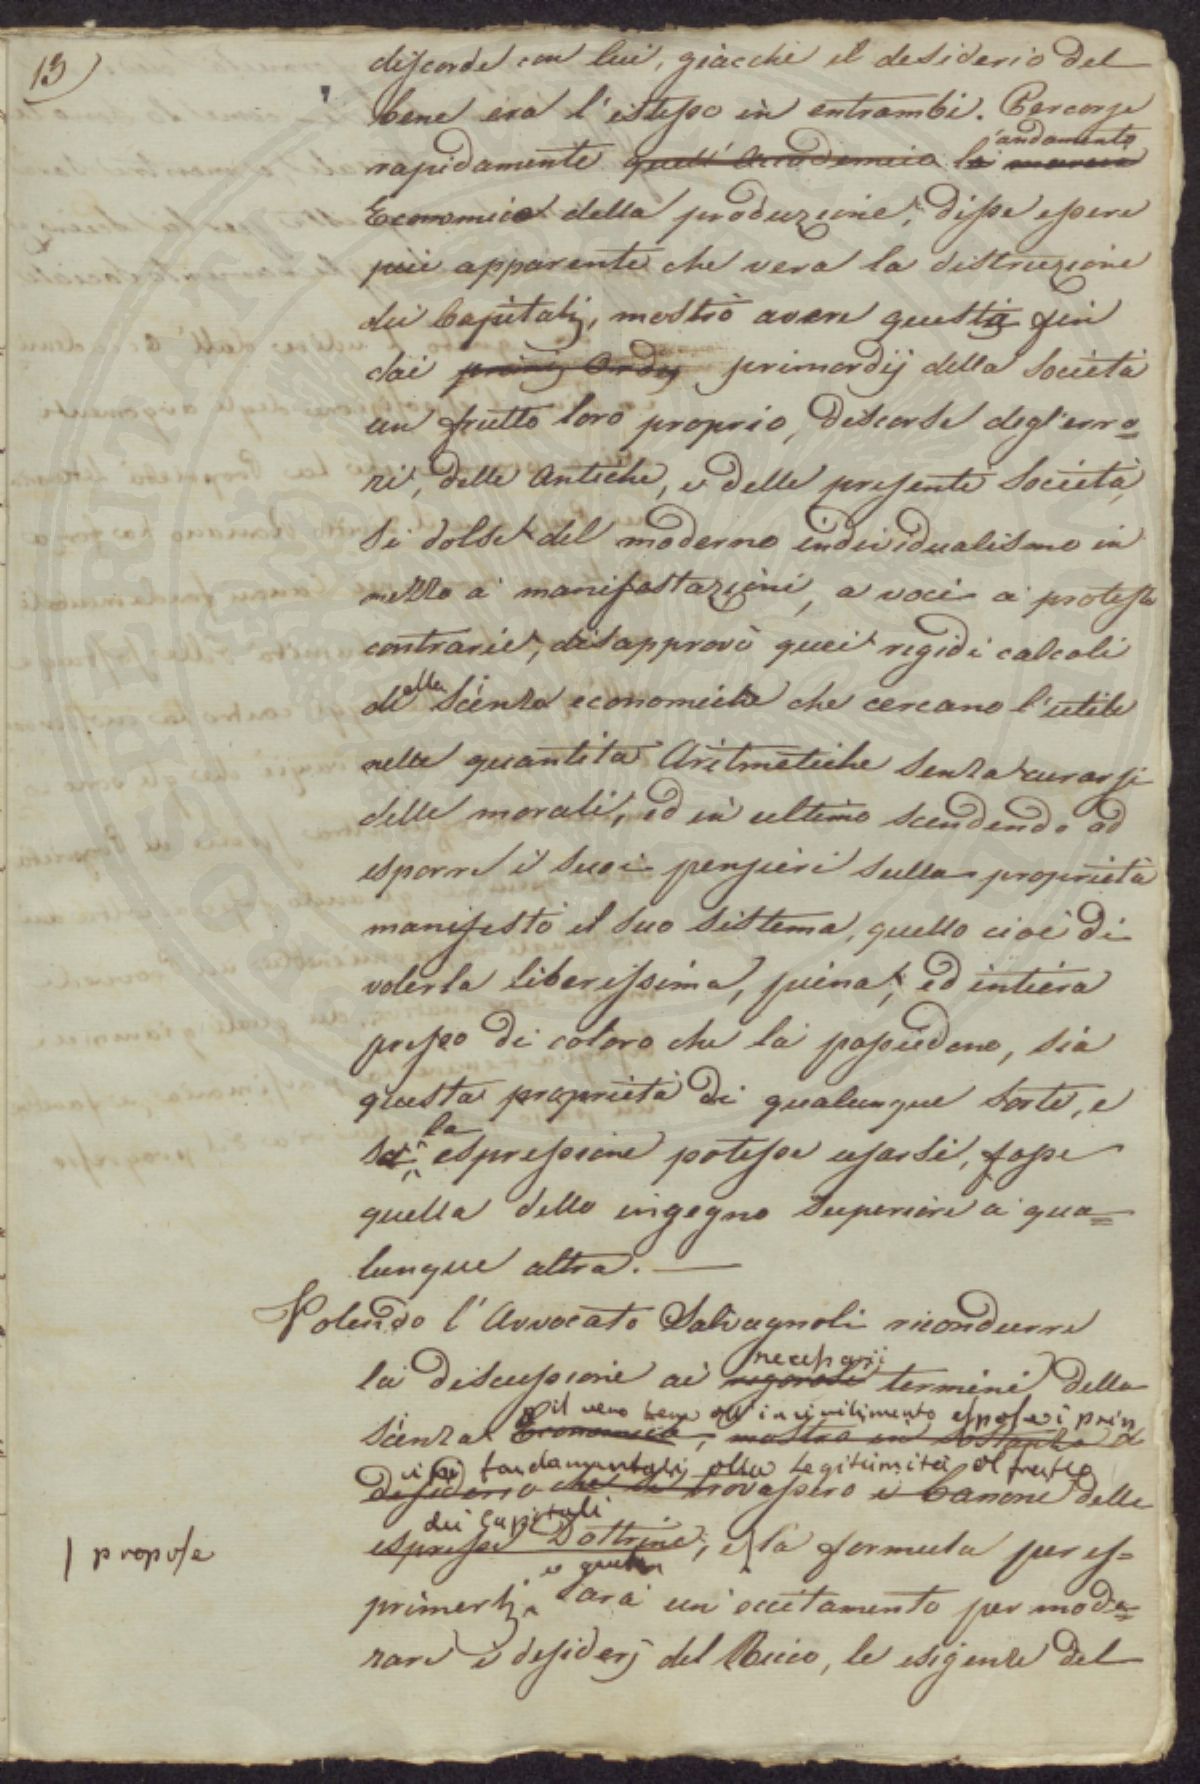 13)
discorde con lui, giacchè il desiderio del
bene era l'istesso in entrambi. Percorse
l'andamento
rapidamente quell'Accademico la marcia
Economica della produzione, disse essere
più apparente che vera la distruzione
dei Capitali, mostrò avere questi fin
dai primi Ordij primordij della Società
un frutto loro proprio, discorse degl'erro=
ri, delle Antiche, e delle presenti Società,
si dolse del moderno individualismo in
mezzo a manifestazioni, a voci a proteste
contrarie, disapprovò quei rigidi calcoli
della Scienza economica che cercano l'utile
nelle quantità Aritmetiche senza curarsi
delle morali, ed in ultimo scendendo ad
esporre i suoi pensieri sulla proprietà
manifestò il suo sistema, quello cioè di
volerla liberissima, piena, ed intiera
presso di coloro che la possiedono, sia
questa proprietà di qualunque sorte, e
la
se espressione potesse usarsi, fosse
quella dello ingegno superiore a qua=
lunque altra. —
Volendo l'Avvocato Salvagnoli ricondurre
necessarj
la discussione ai rigorosi termini della
il vero bene all'incivilimento espose i prin
scienza Economica, mostra in sostanza il
cipj fondamentali, alla legitimità del frutto
desiderio che si trovassero i Canoni delle
dei Capitali
espresse Dottrine, e la formula per es=
| propose
e questa
primerli, sarà un eccitamento per mode=
rare i desiderj del Ricco, le esigenze del